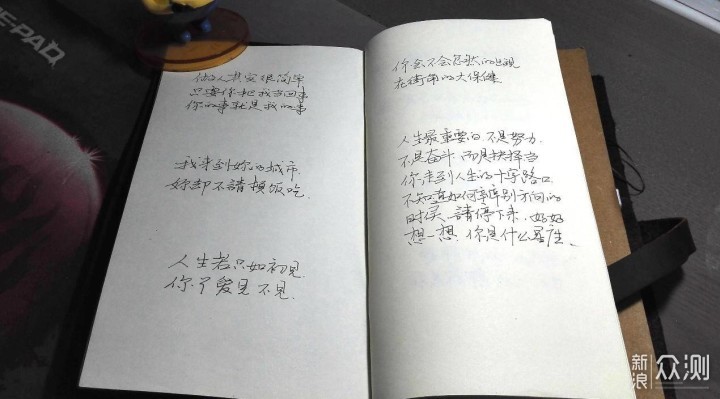 E-PAD
做人其实很简单
只要你把我当回事
你的事就是我的事
我来到妳的城市
妳却不請顿饭吃
人生若只如初见
你丫爱見不見
你会不会忽然的出现
在街角的大保健
人生最重要的不是努力
不是奋斗而是抉择当
你走到人生的十字路口
不知道如何辨别方向的
时候 請停下来 好好
想一想 你是什么星座
新浪众测